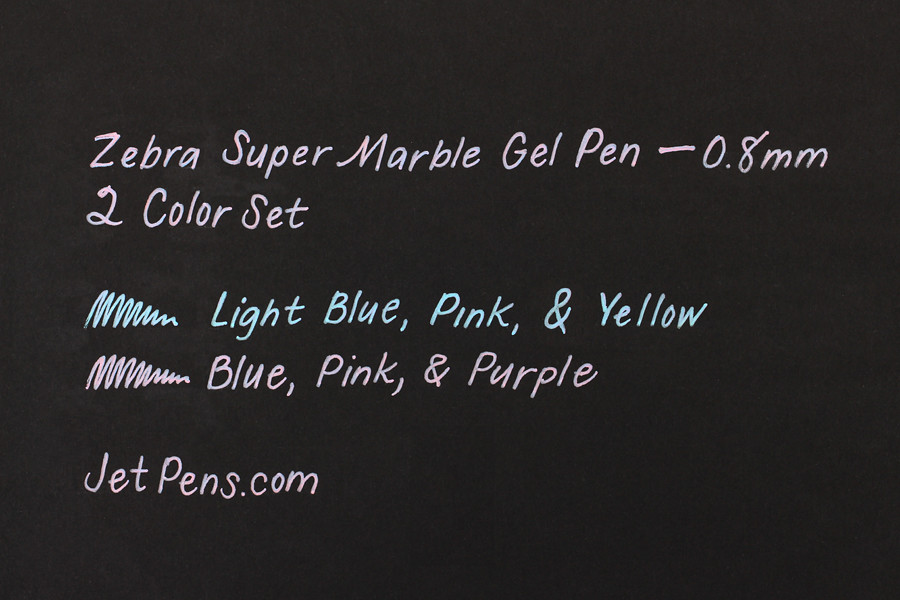 Zebra Super Marble Gel Pen – 0.8mm
2 Color Set
Light Blue, Pink, & Yellow
Blue, Pink, & Purple
JetPens.com